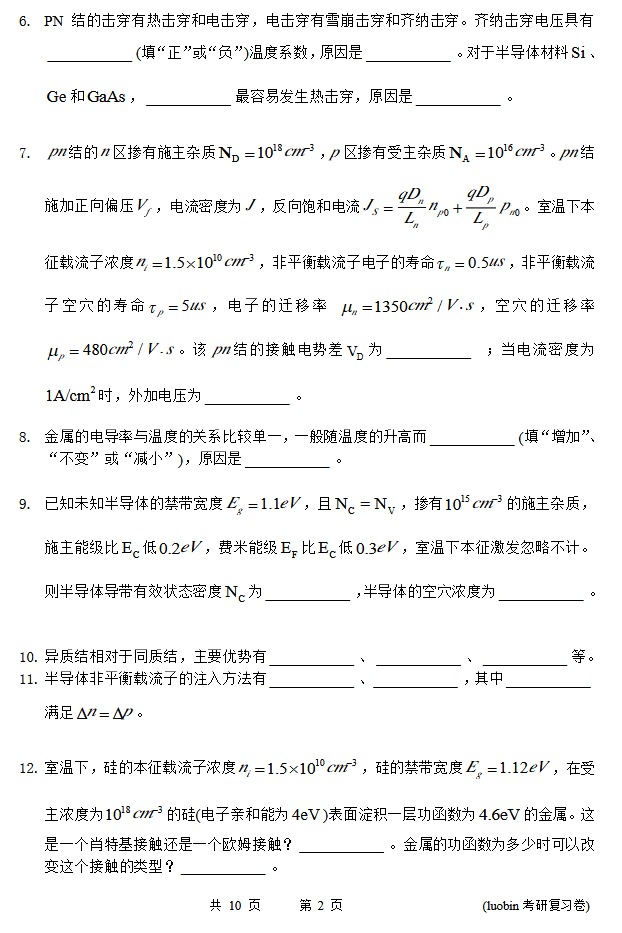 6. PN 结的击穿有热击穿和电击穿，电击穿有雪崩击穿和齐纳击穿。齐纳击穿电压具有
____________ (填“正”或“负”)温度系数，原因是 ____________ 。对于半导体材料 Si 、
Ge 和 GaAs ， ____________ 最容易发生热击穿，原因是 ____________ 。
7. pn 结的 n 区掺有施主杂质 N_D = 10^18 cm^-3 ，p 区掺有受主杂质 N_A = 10^16 cm^-3 。pn 结
施加正向偏压 V_f ，电流密度为 J ，反向饱和电流 J_S = (qD_n / L_n) n_p0 + (qD_p / L_p) p_n0 。室温下本
征载流子浓度 n_i = 1.5×10^10 cm^-3 ，非平衡载流子电子的寿命 τ_n = 0.5us ，非平衡载流
子空穴的寿命 τ_p = 5us ，电子的迁移率 μ_n = 1350cm^2 / V · s ，空穴的迁移率
μ_p = 480cm^2 / V · s 。该 pn 结的接触电势差 V_D 为 ____________ ；当电流密度为
1A/cm^2 时，外加电压为 ____________ 。
8. 金属的电导率与温度的关系比较单一，一般随温度的升高而 ____________ (填“增加”、
“不变”或“减小”)，原因是 ____________ 。
9. 已知未知半导体的禁带宽度 E_g = 1.1eV ，且 N_C = N_V ，掺有 10^15 cm^-3 的施主杂质，
施主能级比 E_C 低 0.2eV ，费米能级 E_F 比 E_C 低 0.3eV ，室温下本征激发忽略不计。
则半导体导带有效状态密度 N_C 为 ____________ ,半导体的空穴浓度为 ____________ 。
10. 异质结相对于同质结，主要优势有 ____________ 、 ____________ 、 ____________ 等。
11. 半导体非平衡载流子的注入方法有 ____________ 、 ____________ ，其中 ____________
满足 Δn = Δp 。
12. 室温下，硅的本征载流子浓度 n_i = 1.5×10^10 cm^-3 ，硅的禁带宽度 E_g = 1.12eV ，在受
主浓度为 10^18 cm^-3 的硅(电子亲和能为 4eV )表面淀积一层功函数为 4.6eV 的金属。这
是一个肖特基接触还是一个欧姆接触？ ____________ 。金属的功函数为多少时可以改
变这个接触的类型？ ____________ 。
共 10 页 第 2 页 (luobin 考研复习卷)